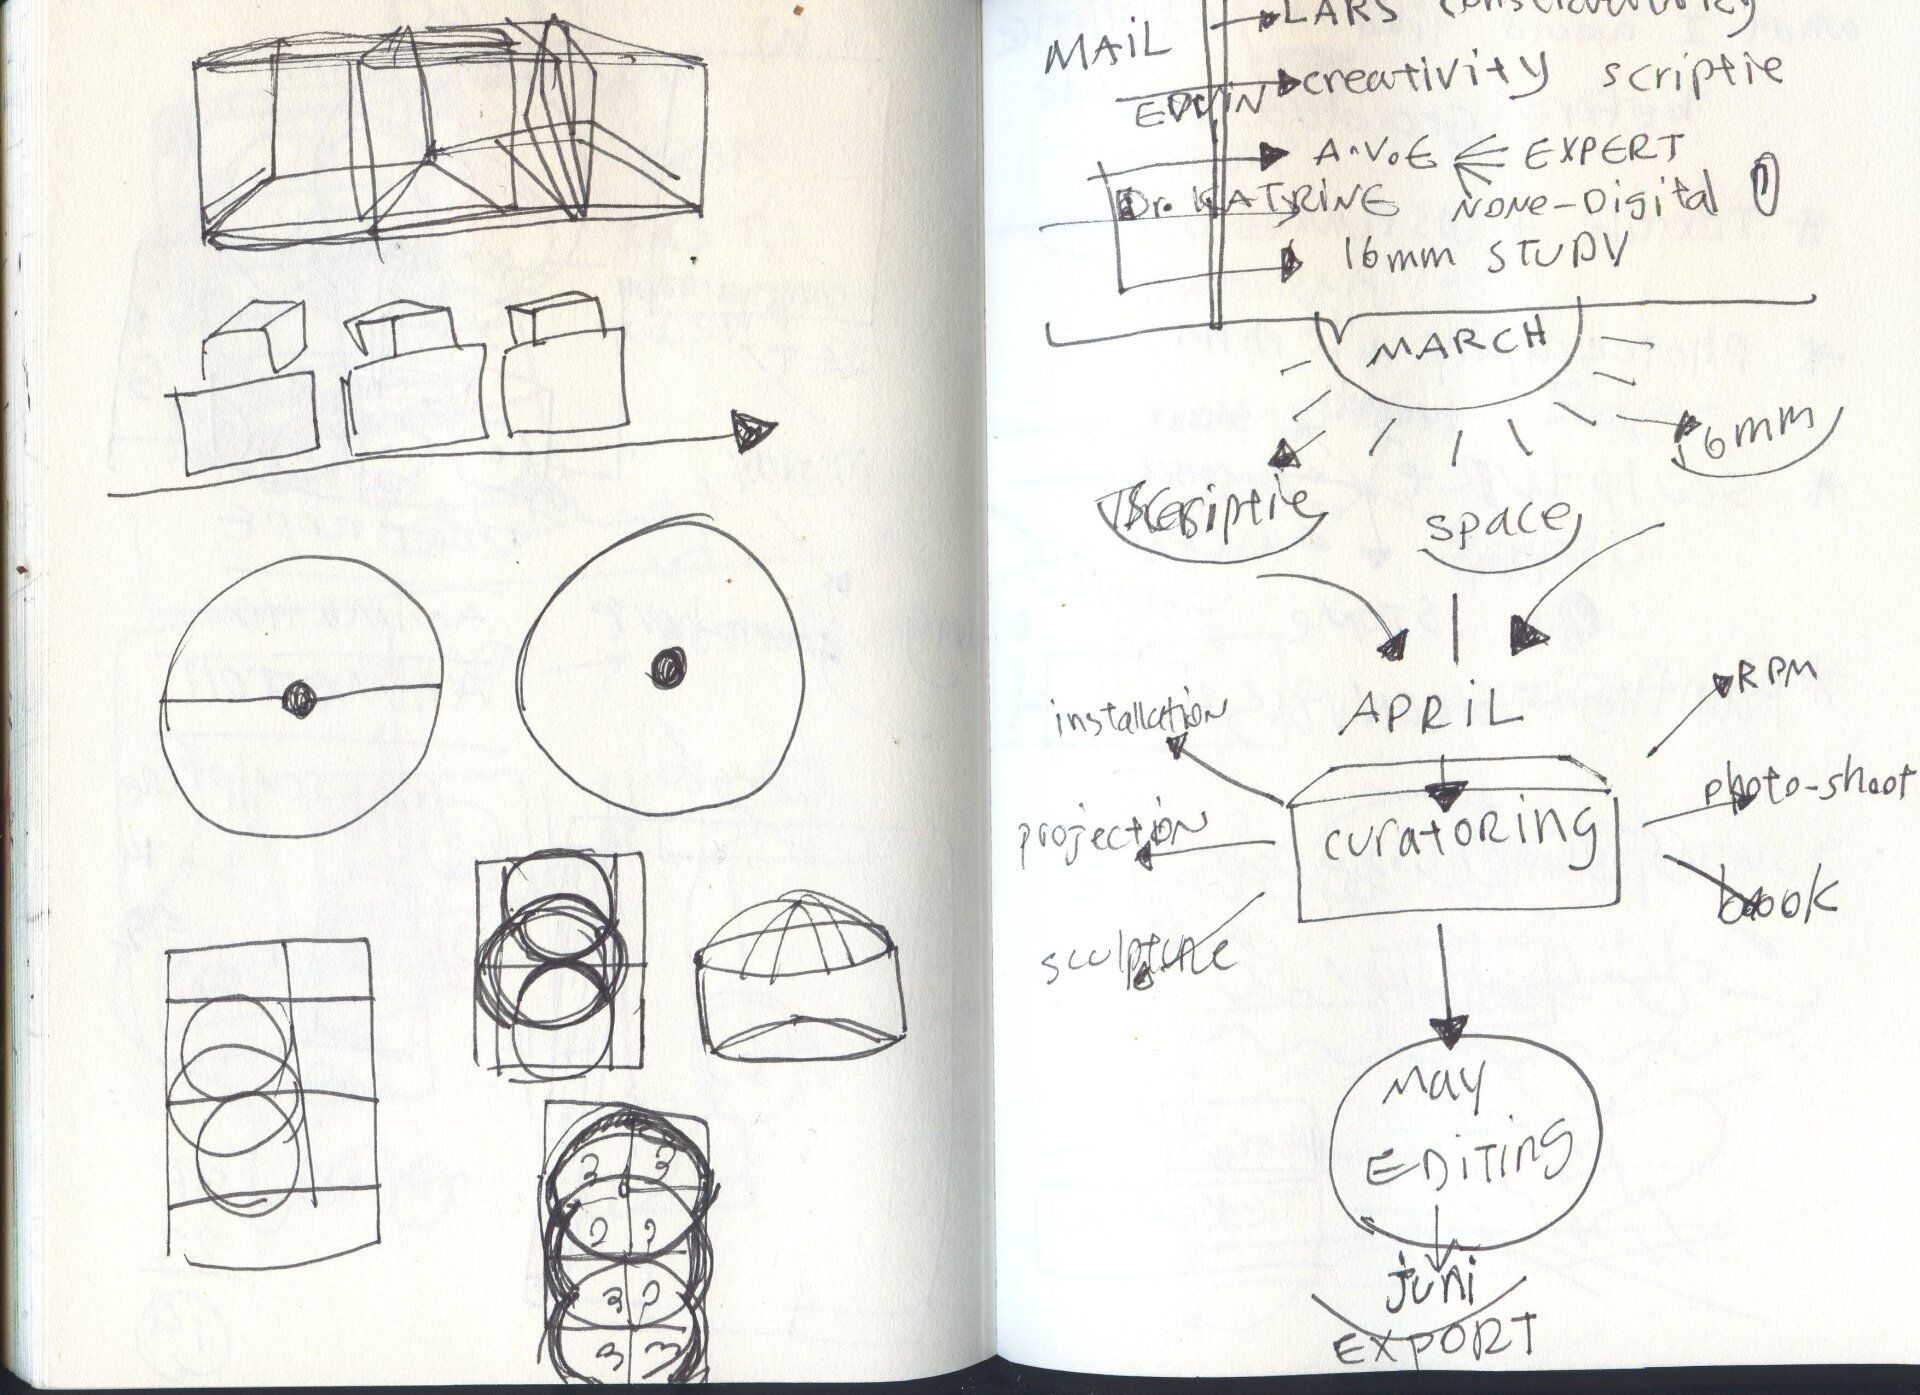 MAIL
LARS
EDWIN
creativity scriptie
A.V.E EXPERT
Dr. KATRINE NONE-Digital
16mm STUDY
MARCH
16mm
scriptie
space
APRIL
RPM
installation
photo-shoot
curatoring
projection
book
sculpture
MAY
EDITING
juni
EXPORT
3 3
? ?
3 ?
3 3